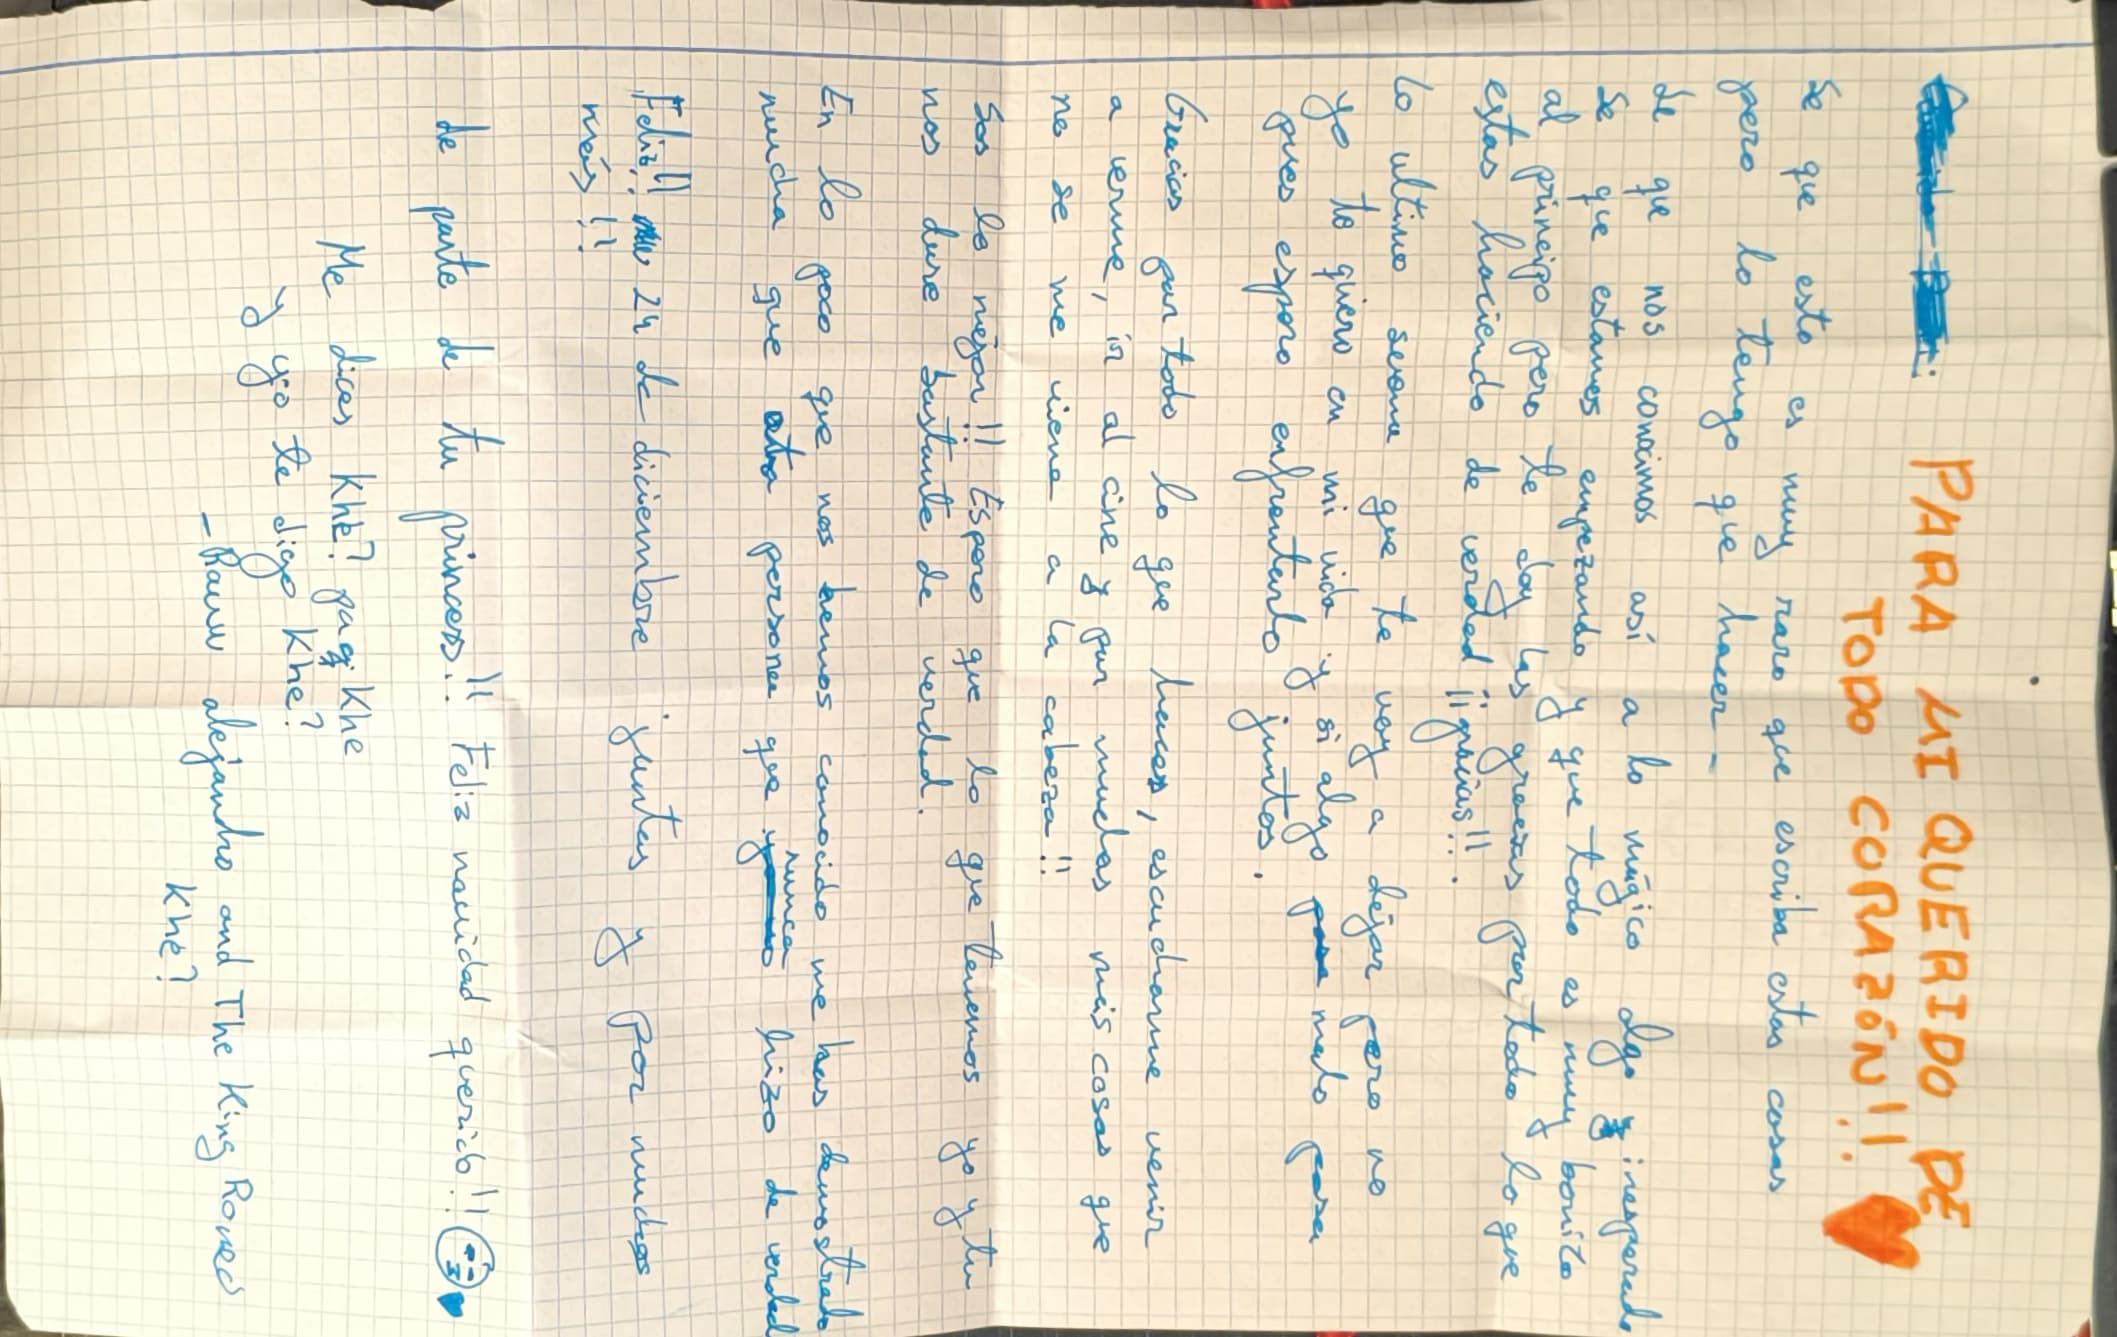 PARA MI QUERIDO DE
TODO CORAZÓN!!
Se que esto es muy raro que escriba estas cosas
pero lo tengo que hacer-
Se que nos conocimos así a lo mágico algo inesperado
Se que estamos empezando y que todo es muy bonito
al principo pero te doy las gracias por todo lo que
estas haciendo de verdad ¡¡gracias!!.
Lo ultimo que te voy a dejar pero no
yo te quiero en mi vida y si algo malo pasa
pues espero enfrentarlo juntos.
Gracias por todo lo que haces, escucharme venir
a verme, ir al cine y por muchas más cosas que
no se me viene a la cabeza!!
Sos lo mejor!! Espero que lo que tenemos yo y tu
nos dure bastante de verdad.
En lo poco que nos hemos conocido me has demostrado
mucha que otra persona que nunca hizo de verdad
Feliz!! 24 de diciembre juntos y por muchos
más!!
de parte de tu princess!! Feliz navidad querido!!
Me dices Khé? pa q Khe
y yo te digo Khe?
-Rauw alejandro and The King Romeo
Khé?